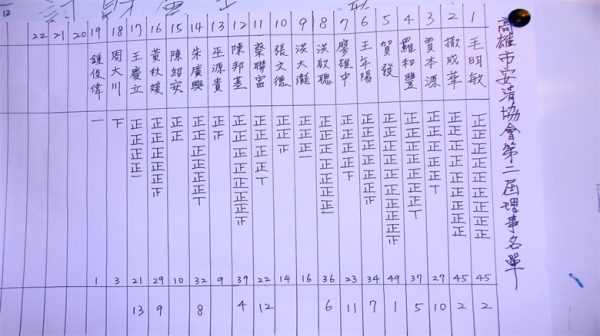 高雄市安清協會第二屆理事名單
1 毛明敏 正正正正正正正正正 45 2
2 撒成華 正正正正正正正正正 45 2
3 賈本源 正正正正正丅 27 10
4 羅和豐 正正正正正正正丅 37 5
5 賀發 正正正正正正正正正止 49 1
6 王年陽 正正正正正正止 34 7
7 廖雄中 正正正正下 23 11
8 洪啟聰 正正正正正正正一 36 6
9 洪大瀧 正正正一 16
10 張文德 正正止 14
11 蔡聯富 正正正正丅 22 12
12 陳邦基 正正正正正正正止 39 4
13 巫源貴 正止 9
14 朱廣興 正正正正正正丅 32 8
15 陳超安 正正 10
16 黃秋媛 正正正正正止 29 9
17 王慶立 正正正正一 21 13
18 周大川 下 3
19 鍾俊偉 一 1
20
21
22